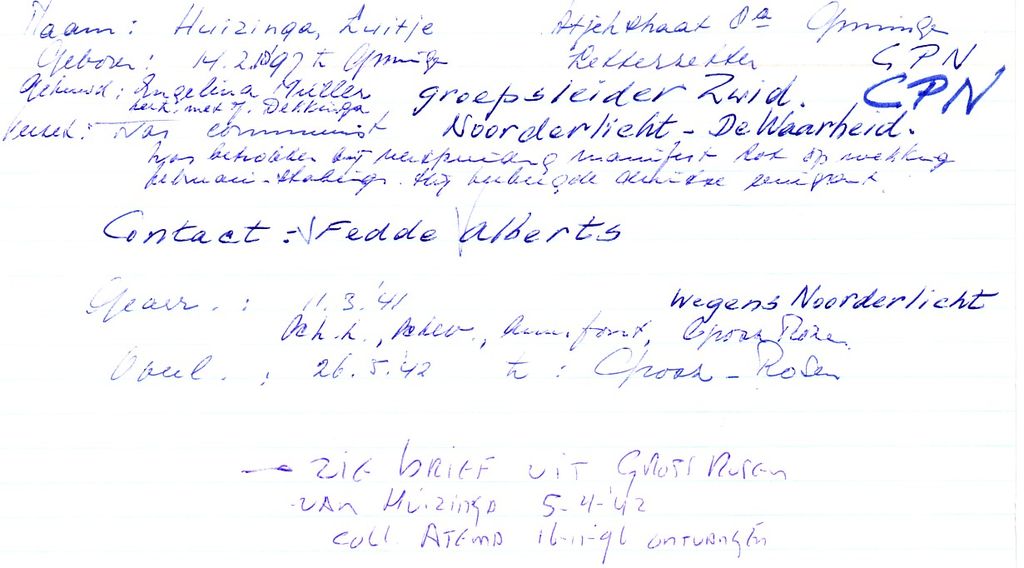 Naam: Huizinga, Luitje Atjehstraat 8a Groningen
Geboren: 14.2.1897 te Groningen Letterzetter CPN
Gehuwd: Engelina Müller groepsleider Zuid. CPN
met J. Dekkinga
Was communist Noorderlicht - De Waarheid.
Was betrokken bij verspreiding manifest tot opwekking
februari-staking. Hij herbergde Duitse emigrant.
Contact :- Fedde Alberts
Gearr. : 11.3.'41 wegens Noorderlicht
Sch.h., Schev., Amersfoort, Gross Rosen
Overl. : 26.5.'42 te : Gross-Rosen
→ ZIE BRIEF UIT GROSS ROSEN
VAN HUIZINGA 5-4-'42
COLL. ATEMA 16-11-96 ONTVANGEN